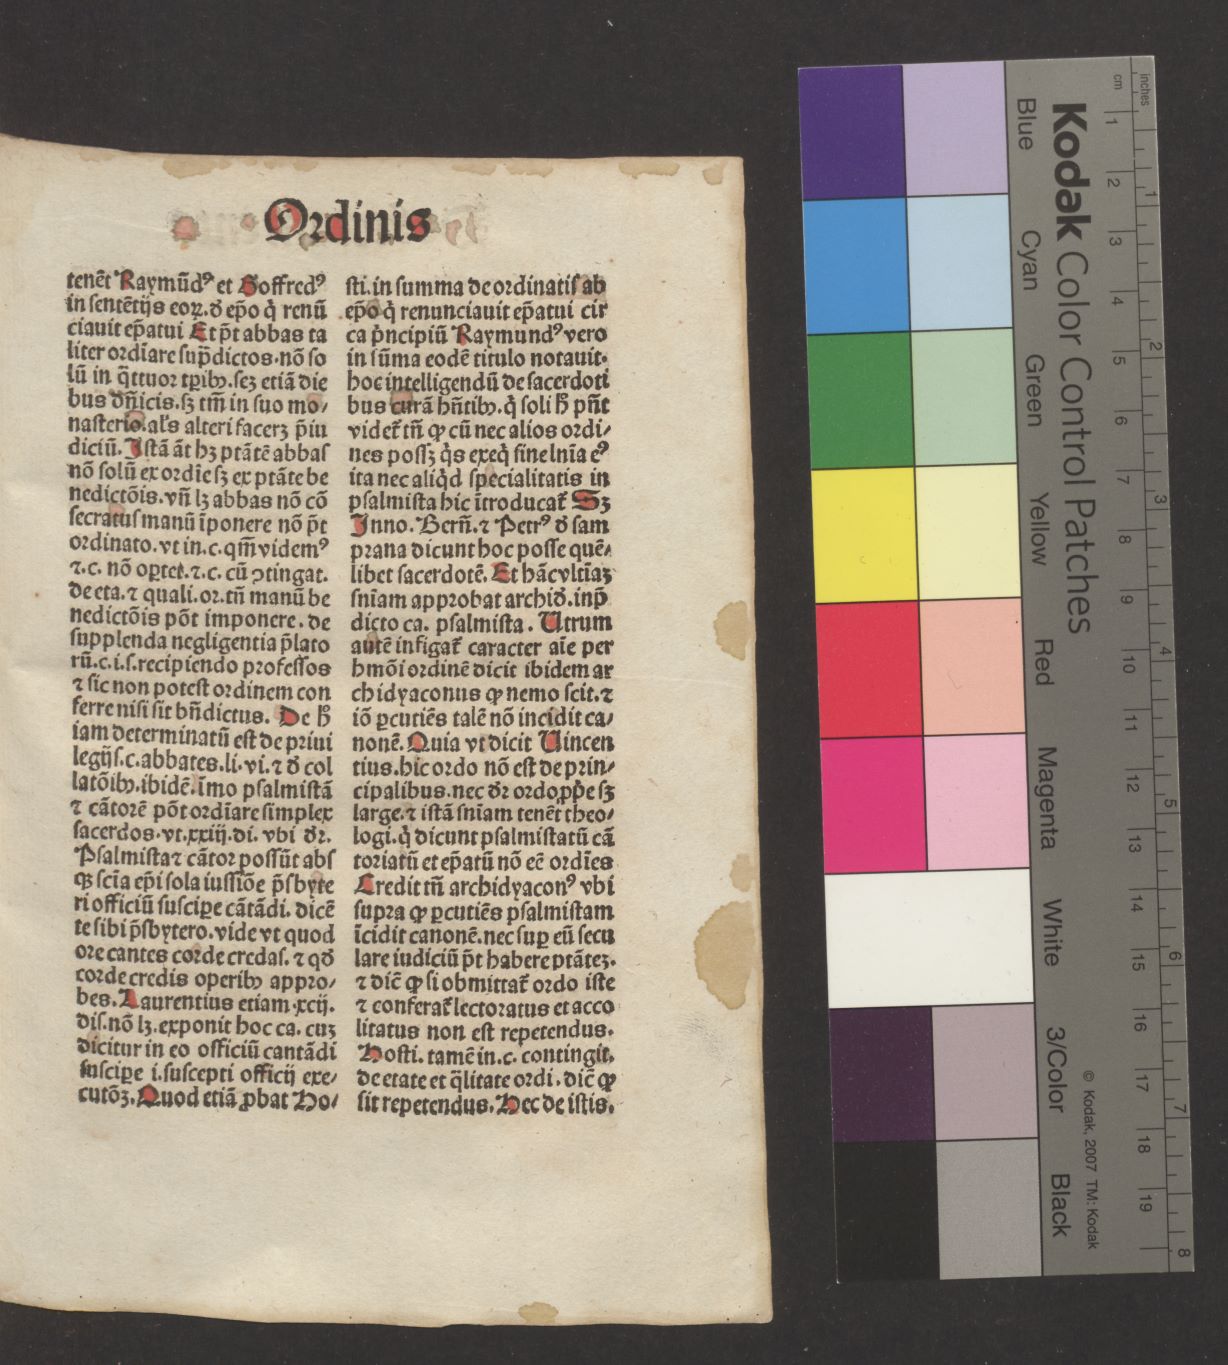 Ordinis
tenēt Raymūdꝰ et Goffredꝰ
in sentētijs eoꝝ. ꝺ̄ ep̄o q̇ renū
ciauit ep̄atui Et p̄t abbas ta
liter ordīare sup̄dictos. nō so
lū in q̄ttuor tꝑibꝰ. sez etiā die
bus dn̄icis. sꝫ tm̄ in suo mo⸗
nasterio. al's alteri facerꝫ p̄iu
diciū. Istā āt hꝫ ptātē abbas
nō solū ex ordīe sꝫ ex ptāte be
nedictōis. vn̄ lꝫ abbas nō cō
secratus manū īponere nō p̄t
ordinato. vt in. c. qm̄ videmꝰ
⁊. c. nō oꝑtet. ⁊. c. cū ↄtingat.
de eta. ⁊ quali. or. tn̄ manū be
nedictōis pōt imponere. de
supplenda negligentia p̄lato
rū. c. i. s. recipiendo professos
⁊ sic non potest ordinem con
ferre nisi sit bn̄dictus. De h̄
iam determinatū est de priui
legijs. c. abbates. li. vi. ⁊ ꝺ̄ col
latōibꝰ. ibidē. īmo psalmistā
⁊ cātorē pōt ordīare simplex
sacerdos. vt. xxiij. di. vbi dr̄.
Psalmista ⁊ cātor possūt abs
qꝫ scīa ep̄i sola iussiōe p̄sbyte
ri officiū suscipe cātādi. dicē
te sibi p̄sbytero. vide vt quod
ore cantes corde credas. ⁊ qd̄
corde credis operibꝰ appro⸗
bes. Laurentius etiam. xcij.
dis. nō lꝫ. exponit hoc ca. cuꝫ
dicitur in eo officiū cantādi
suscipe i. suscepti officij exe⸗
cutōꝫ. Quod etiā ꝓbat Ho⸗
sti. in summa de ordinatis ab
ep̄o q̇ renunciauit ep̄atui cir
ca p̄ncipiū Raymundꝰ vero
in sūma eodē titulo notauit.
hoc intelligendū de sacerdoti
bus curā hn̄tibꝰ. q̇ soli h̄ pn̄t
videt̄ tn̄ ꝙ cū nec alios ordi⸗
nes possꝫ q̇s exeq̇ sine lnīa eꝰ
ita nec aliq̇d specialitatis in
psalmista hic ītroducat̄ Sꝫ
Inno. Bern̄. ⁊ Petrꝰ ꝺ̄ sam
prana dicunt hoc posse quē⸗
libet sacerdotē. Et hāc vltīaꝫ
snīam approbat archid̄. in p̄
dicto ca. psalmista. Utrum
autē infigat̄ caracter aīe per
hmōi ordinē dicit ibidem ar
chidyaconus ꝙ nemo scit. ⁊
iō ꝑcutiēs talē nō incidit ca⸗
nonē. Quia vt dicit Uincen
tius. hic ordo nō est de prin⸗
cipalibus. nec dr̄ ordo ꝓp̄e sꝫ
large. ⁊ istā snīam tenēt theo⸗
logi. q̇ dicunt psalmistatū cā
toriatū et ep̄atū nō eē ordīes
Credit tn̄ archidyaconꝰ vbi
supra ꝙ ꝑcutiēs psalmistam
īcidit canonē. nec suꝑ eū secu
lare iudiciū p̄t habere ptātēꝫ.
⁊ dic̄ ꝙ si obmittat̄ ordo iste
⁊ conferat̄ lectoratus et acco
litatus non est repetendus.
Hosti. tamē in. c. contingit,
de etate et q̄litate ordi. dic̄ ꝙ
sit repetendus. Hec de istis.
Kodak Color Control Patches
Blue Cyan Green Yellow Red Magenta White 3/Color Black
© Kodak, 2007 TM: Kodak
cm 1 2 3 4 5 6 7 8 9 10 11 12 13 14 15 16 17 18 19
inches 1 2 3 4 5 6 7 8